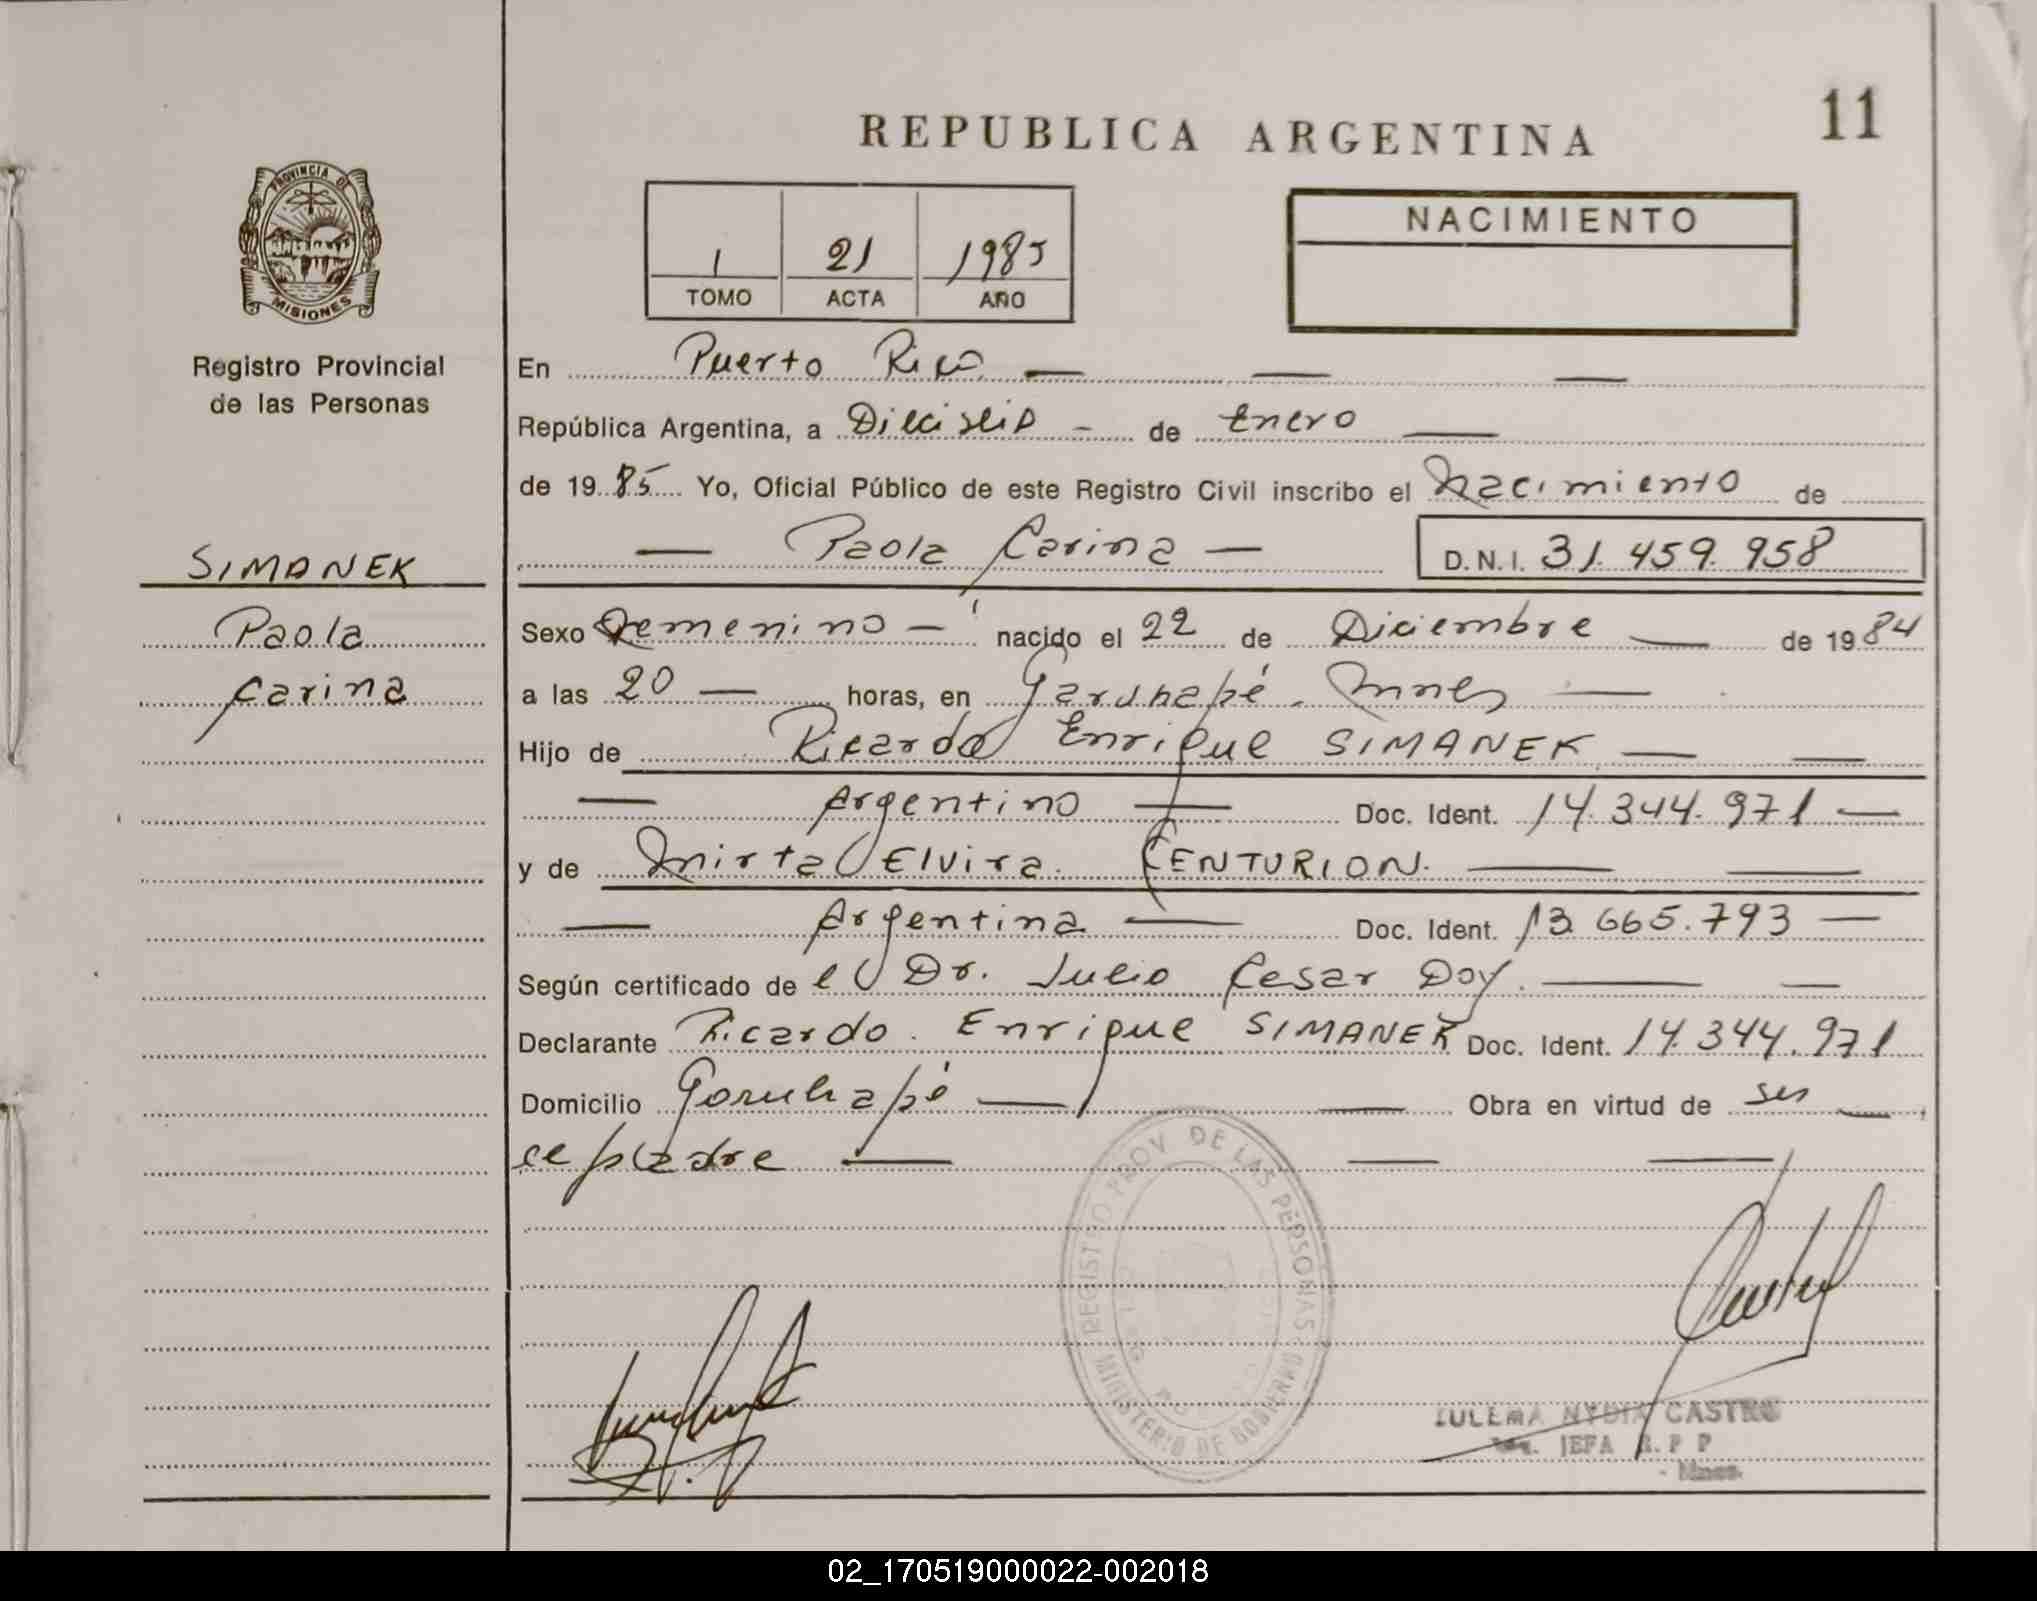 11
REPUBLICA ARGENTINA
PROVINCIA DE
MISIONES
Registro Provincial
de las Personas
1 21 1985
TOMO ACTA AÑO
NACIMIENTO
En Puerto Rico
República Argentina, a Dieciseis - de Enero
de 19 85 Yo, Oficial Público de este Registro Civil inscribo el Nacimiento de
SIMANEK
Paola Carina
D.N.I. 31.459.958
Paola
Carina
Sexo Femenino - nacido el 22 de Diciembre de 19 84
a las 20 horas, en Garuhapé - Mnes
Hijo de Ricardo Enrique SIMANEK
Argentino Doc. Ident. 14.344.971
y de Mirta Elvira CENTURION.
Argentina Doc. Ident. 13.665.793
Según certificado de el Dr. Julio Cesar Doy.
Declarante Ricardo Enrique SIMANEK Doc. Ident. 14.344.971
Domicilio Garuhapé Obra en virtud de ser
el padre
REGISTRO PROV. DE LAS PERSONAS
MINISTERIO DE GOBIERNO
ZULEMA NYDIA CASTRO
JEFA R.P.P
Mnes.
02_170519000022-002018